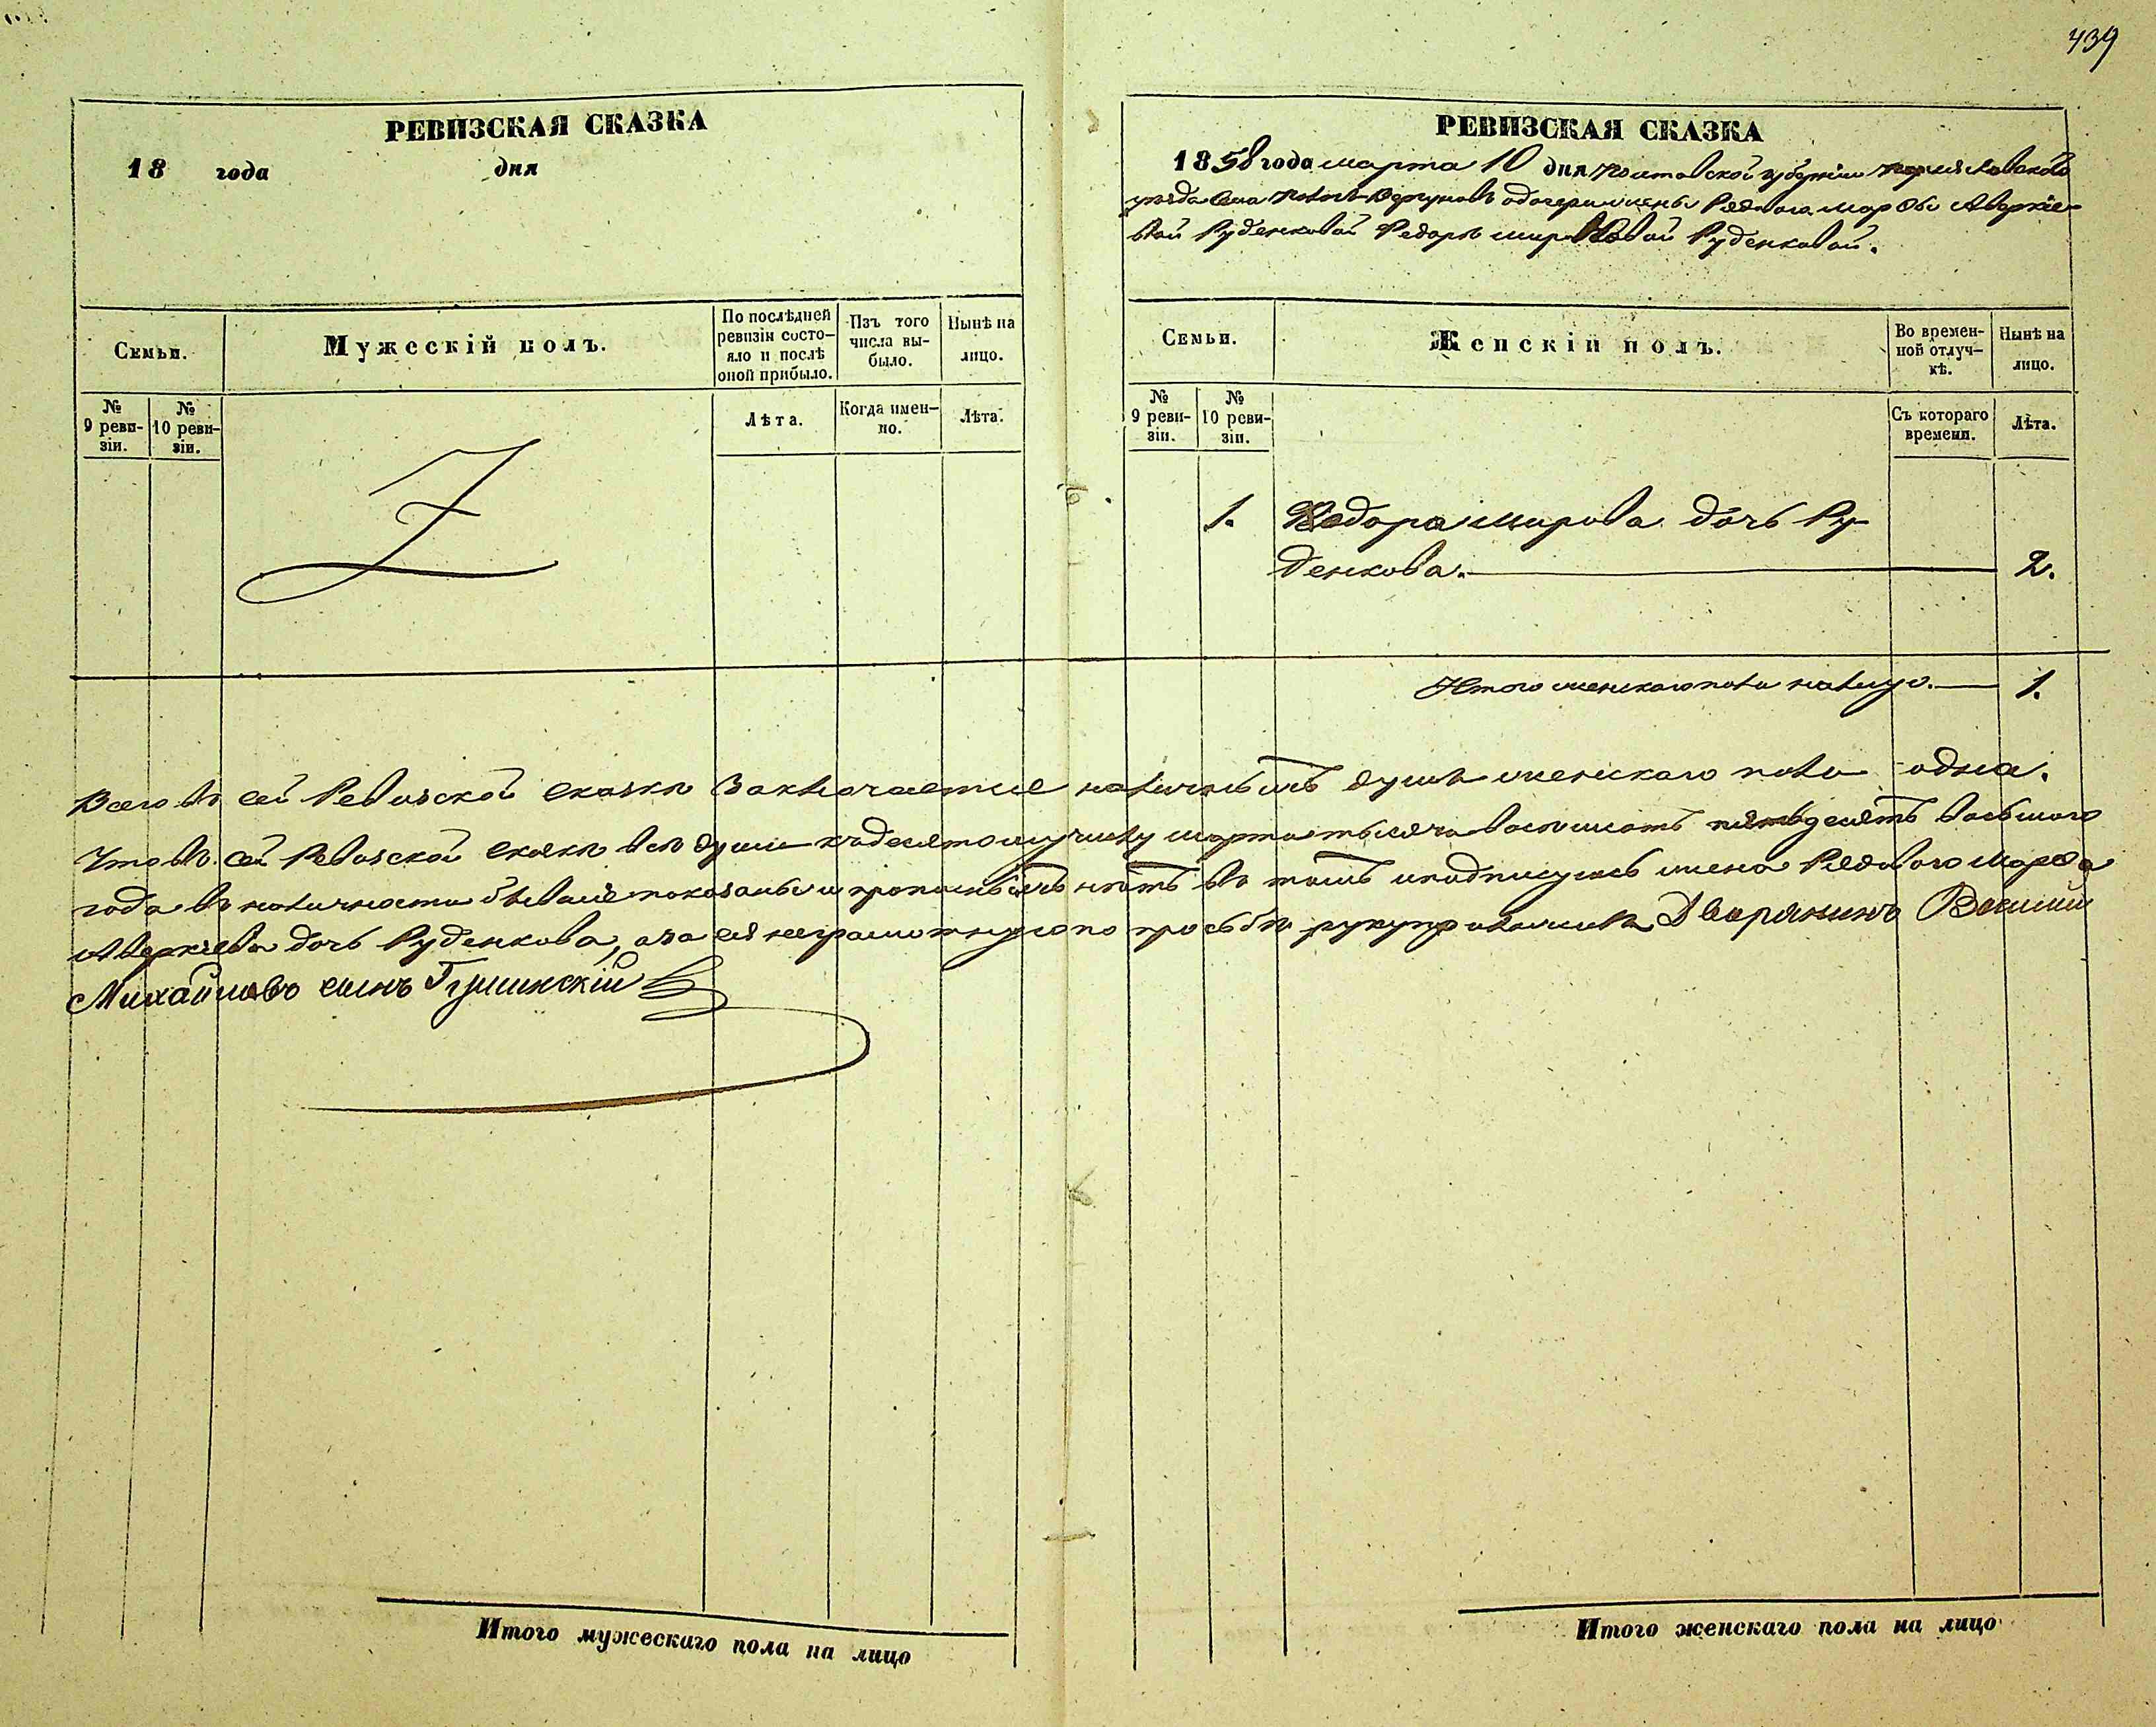 439
РЕВИЗСКАЯ СКАЗКА
18 года дня
Семьи.
Мужескій полъ.
По послѣдней ревизіи состояло и послѣ оной прибыло.
Изъ того числа выбыло.
Нынѣ на лицо.
№ 9 ревизіи.
№ 10 ревизіи.
Лѣта.
Когда именно.
Лѣта.
РЕВИЗСКАЯ СКАЗКА
1858 года марта 10 дня Полтавской губерніи Переяславскаго
уѣзда села Положъ-Вергуновъ одочери жены Рядоваго Марѳы Аверкіе-
вой Руденковой Ѳедорѣ Руденковой.
Семьи.
Женскій полъ.
Во временной отлучкѣ.
Нынѣ на лицо.
№ 9 ревизіи.
№ 10 ревизіи.
Съ котораго времени.
Лѣта.
1. Ѳедора дочь Ру-
денкова. 2.
Итого женскаго пола налицо. 1.
Всего въ сей Ревизской сказкѣ Заключается наличныхъ душъ женскаго пола одна.
Что въ сей Ревизской сказкѣ всѣ души къдесятому числу марта тысяча восемьсотъ пятьдесятъ восьмого
года въ наличности бывшія показаны и прописныхъ нѣтъ въ томъ иподписуюсь жена Рядового Марѳа
Аверкіева дочь Руденкова, аза ея неграмотную по просьбѣ руку приложилъ Дворянинъ Василий
Михайловъ сынъ
Итого мужескаго пола на лицо
Итого женскаго пола на лицо